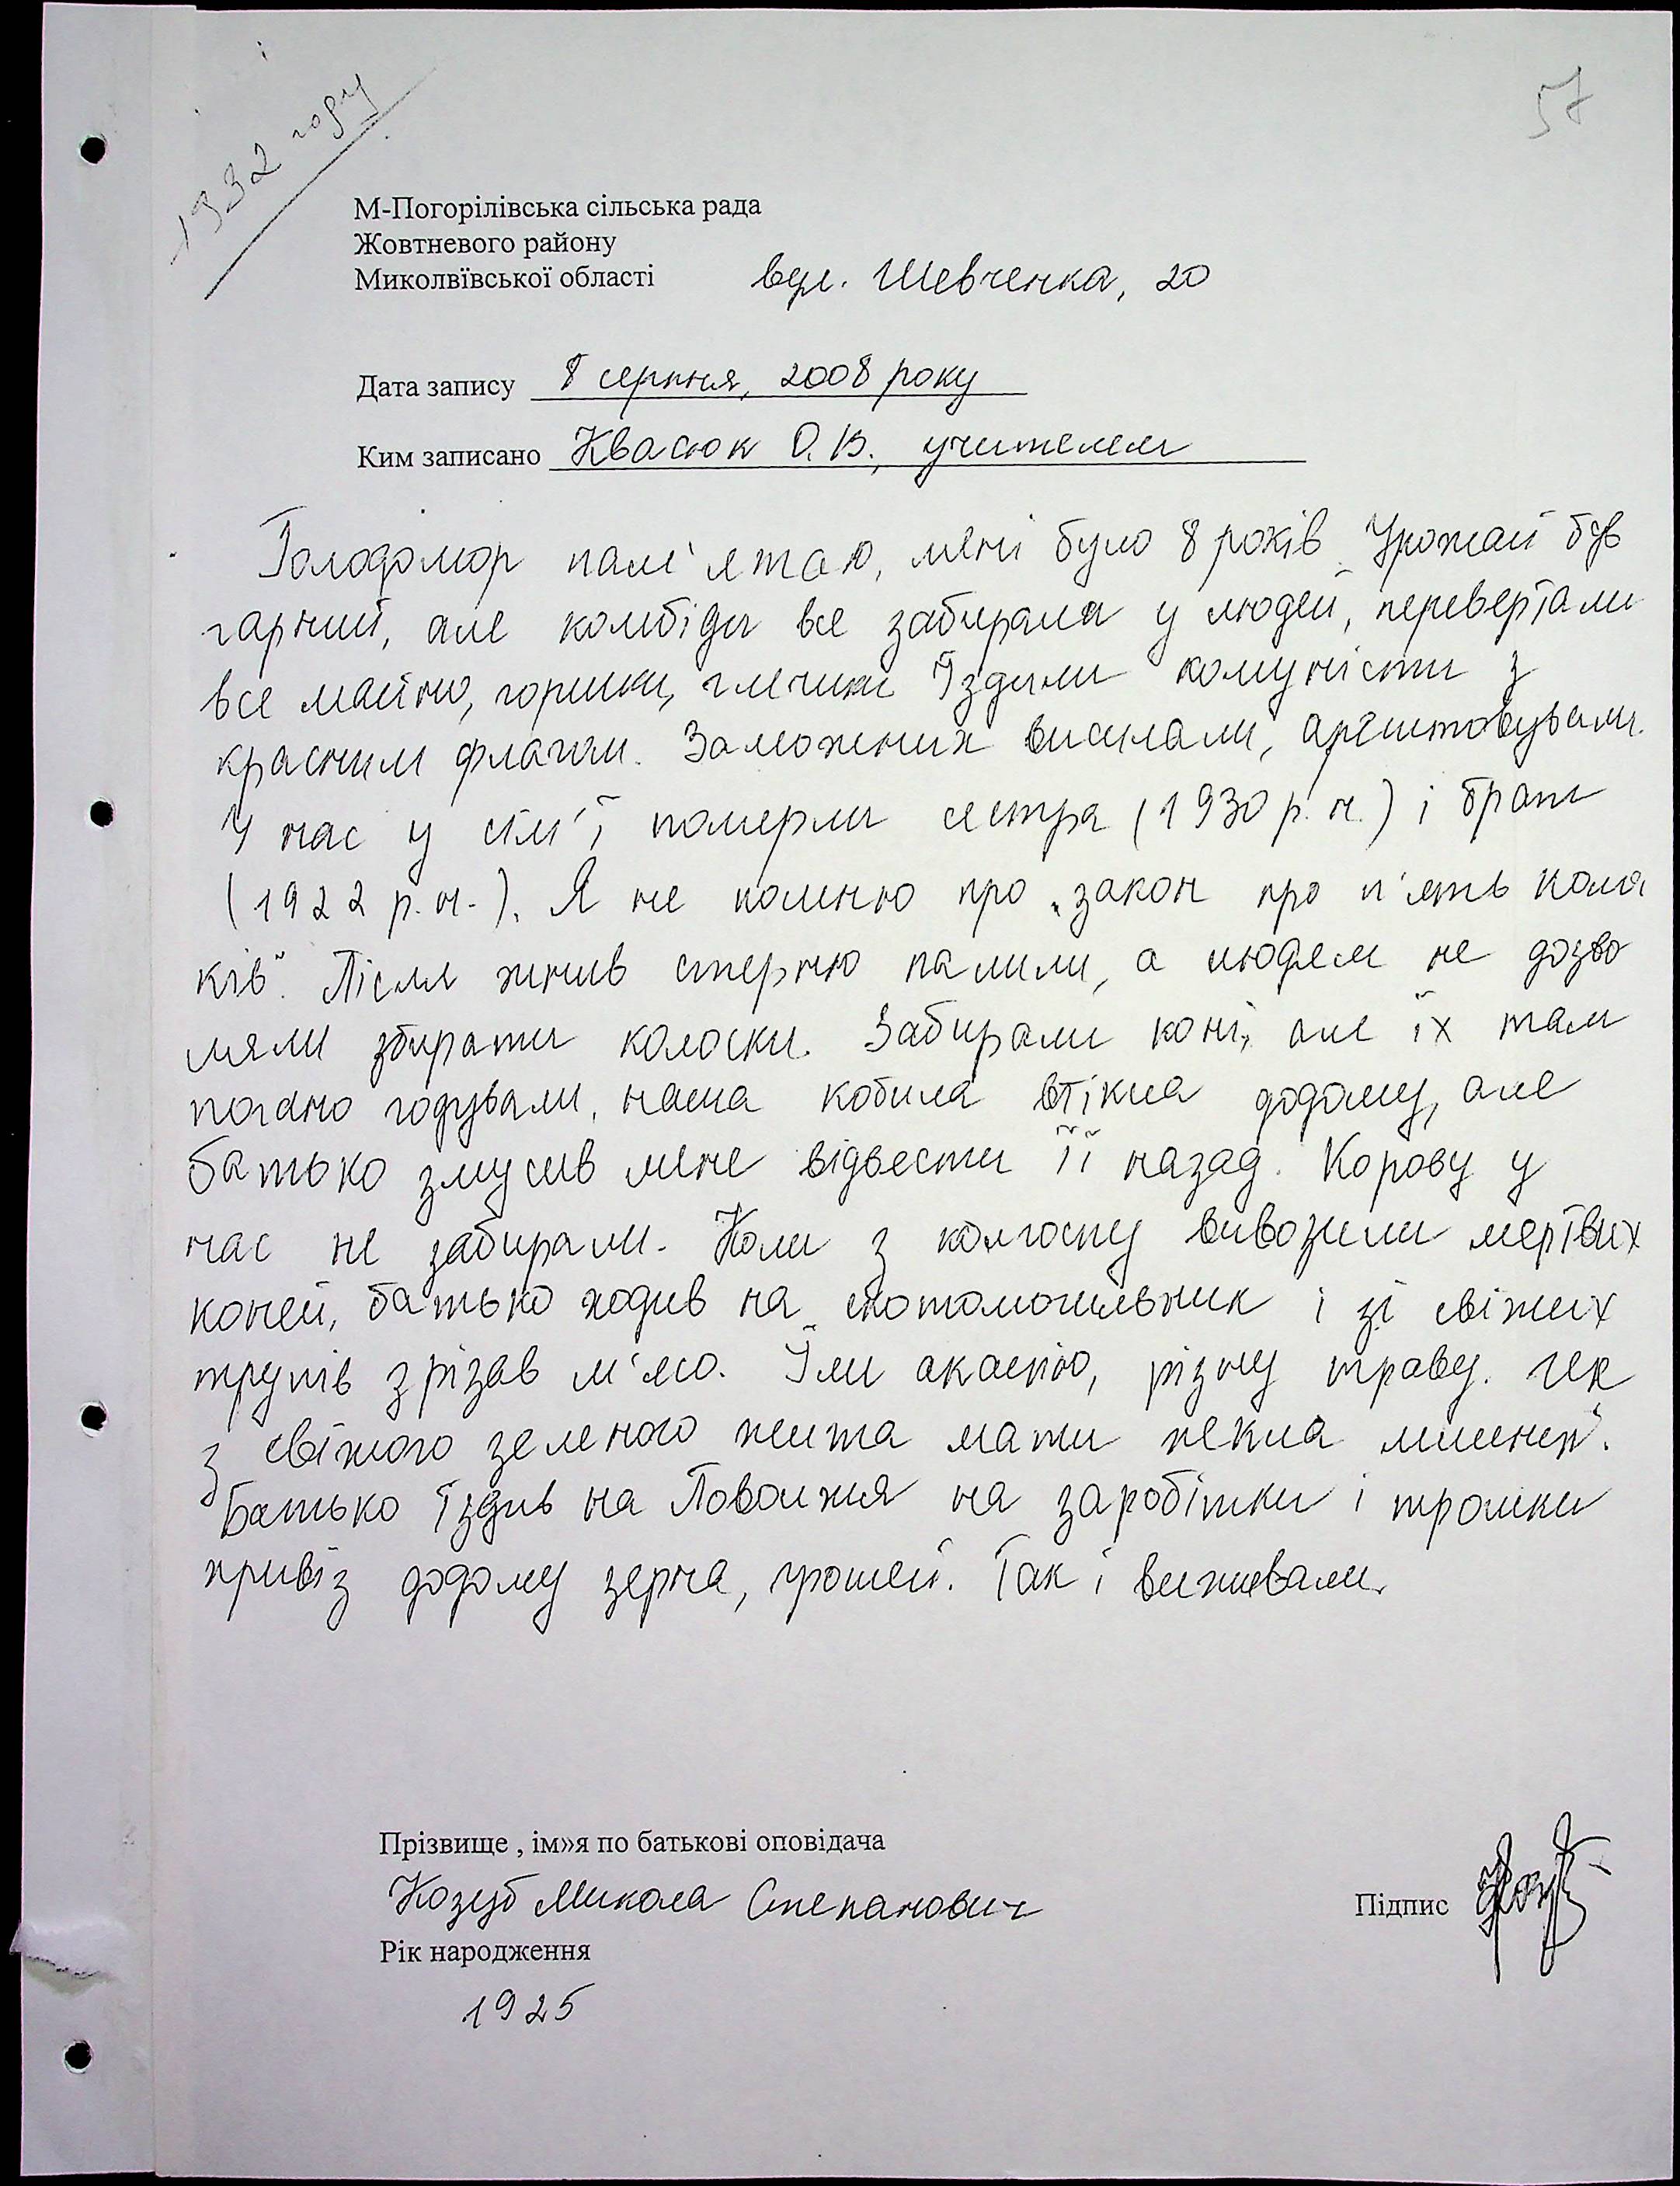 1932 году
57
М-Погорілівська сільська рада
Жовтневого району
Миколвївської області
вул. Шевченка, 20
Дата запису 8 серпня, 2008 року
Ким записано Квасюк О.В., учителем
Голодомор пам'ятаю, мені було 8 років. Урожай був
гарний, але комбіди все забирали у людей, перевертали
все майно, горшки, глечики. Їздили комуністи з
красним флагом. Заможних висилали, арештовували.
У нас у сім'ї померли сестра (1930 р. н.) і брат
(1922 р.н.). Я не помню про „закон про п'ять колос
ків". Після жнив стерню палили, а людям не дозво
ляли збирати колоски. Забирали коні, але їх там
погано годували, наша кобила втікла додому, але
батько змусив мене відвести її назад. Корову у
нас не забирали. Коли з колгоспу вивозили мертвих
коней, батько ходив на скотомогильник і зі свіжих
трупів зрізав м'ясо. Їли акацію, різну траву. Ще
з свіжого зеленого жита мати пекла млинці.
Батько їздив на Поволжя на заробітки і трошки
привіз додому зерна, грошей. Так і виживали.
Прізвище , ім»я по батькові оповідача
Козуб Микола Степанович
Підпис
Рік народження
1925